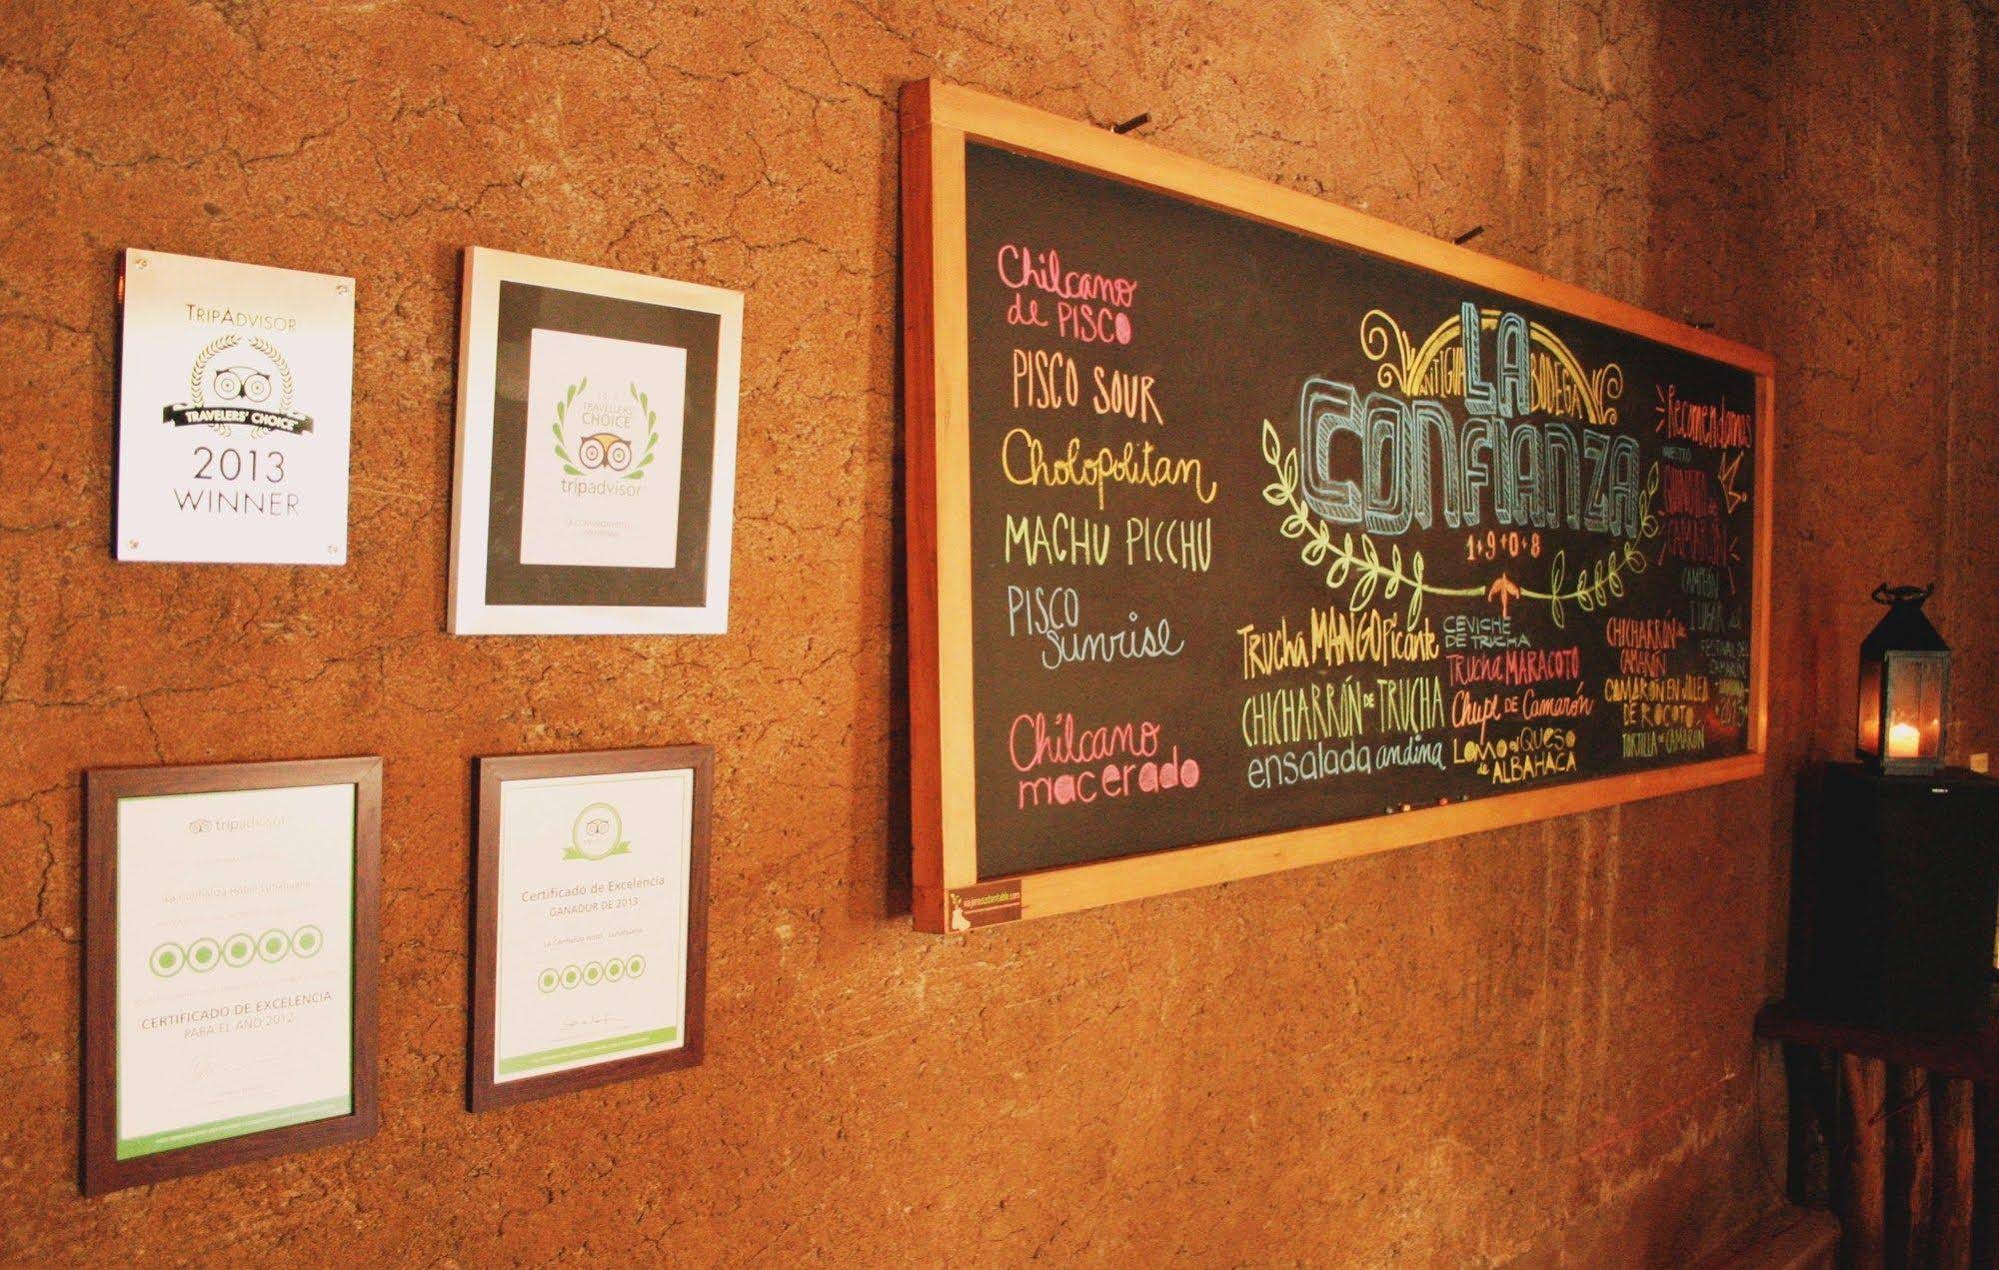 TRIPADVISOR
TRAVELERS' CHOICE
2013
WINNER
TRAVELLERS'
CHOICE
tripadvisor
tripadvisor
La Confianza Hotel Lunahuana
CERTIFICADO DE EXCELENCIA
PARA EL AÑO 2012
Certificado de Excelencia
GANADOR DE 2013
La Confianza Hotel - Lunahuana
Chilcano
de PISCO
PISCO SOUR
Cholopolitan
MACHU PICCHU
PISCO
Sunrise
Chilcano
macerado
ANTIGUA BODEGA
LA
CONFIANZA
1+9+0+8
TRUCHA MANGO Picante
CHICHARRÓN DE TRUCHA
ensalada andina
CEVICHE
DE TRUCHA
TRUCHA MARACOTO
Chupe DE Camarón
LOMO al QUESO
de ALBAHACA
CHICHARRÓN DE
CAMARÓN
CAMARÓN EN JALEA
DE ROCOTO
TORTILLA de CAMARÓN
Recomendamos
NUESTRO
CAMARÓN
FESTIVAL DEL
CAMARÓN
2013
viajerosustentable.com